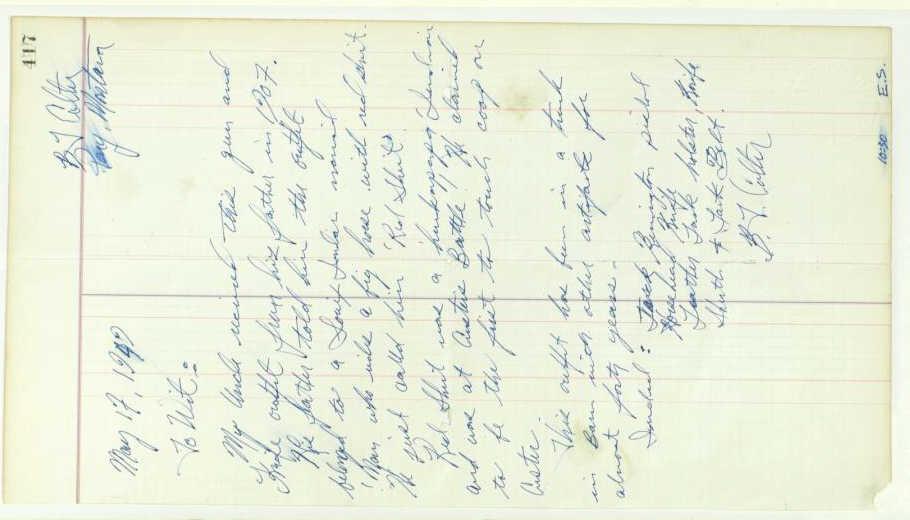 417
Montana
May 17, 1947
To Wit:
My Uncle received this gun and
Knife outfit from his father in 907.
His father told him this outfit
belonged to a Sioux Indian named
"Man who rides a big horse with red shirt.
He just called him "Red Shirt".
Red Shirt was a hunkpapa Indian
and was at Custers Battle. He claimed
to be the first to touch coop on
Custer
This outfit has been in a trunk
in Barn with other artifacts for
almost forty years.
Included: Tack Remington pistol
Horsehead Knife
Leather Tack holster, Knife
Sheath & Tack Belt.
B. J.
10:30 E.S.